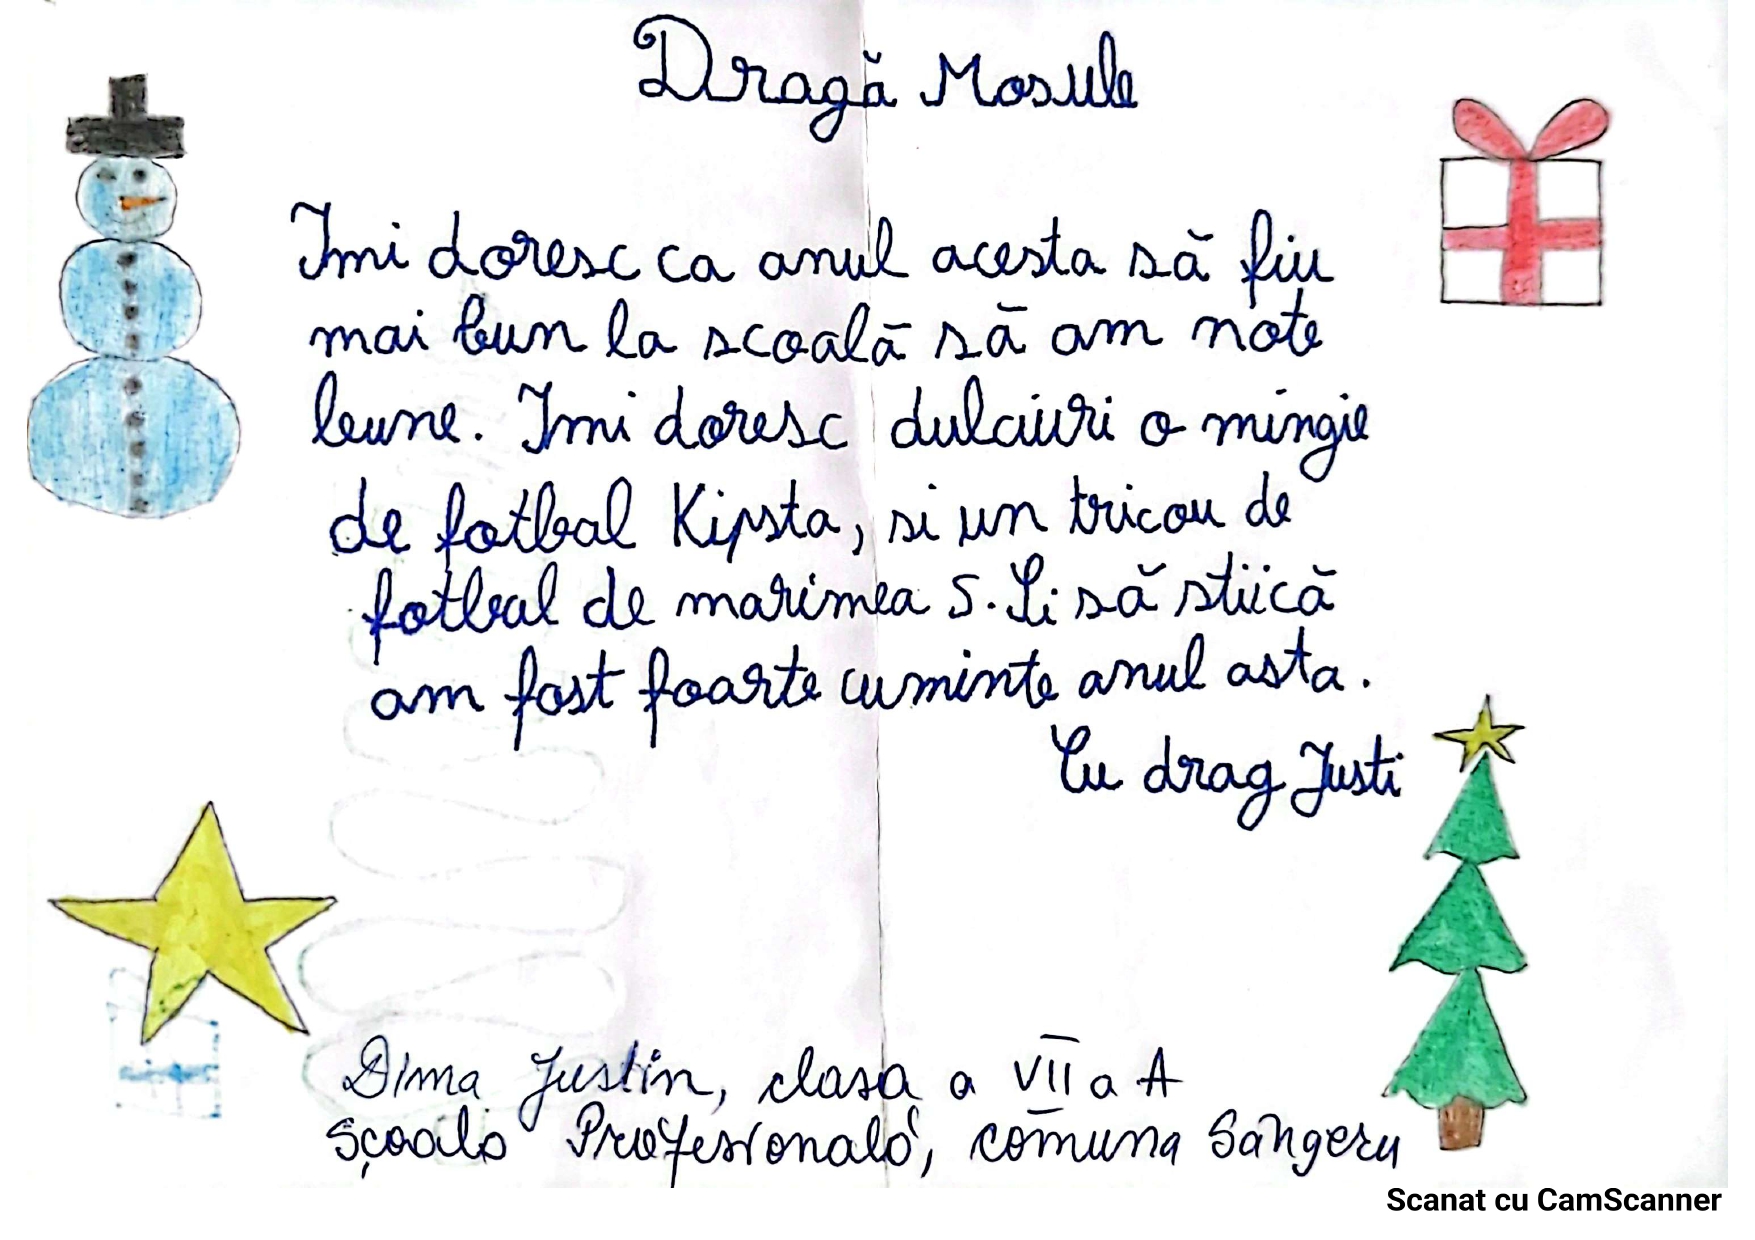 Dragă Mosule
Imi doresc ca anul acesta să fiu
mai bun la scoală să am note
bune. Imi doresc dulciuri o mingie
de fotbal Kipsta, si un tricou de
fotbal de marimea S. Si să stiică
am fost foarte cuminte anul asta.
Cu drag Justi
Dima Justin, clasa a VII a A
Școala Profesională, comuna Sângeru
Scanat cu CamScanner